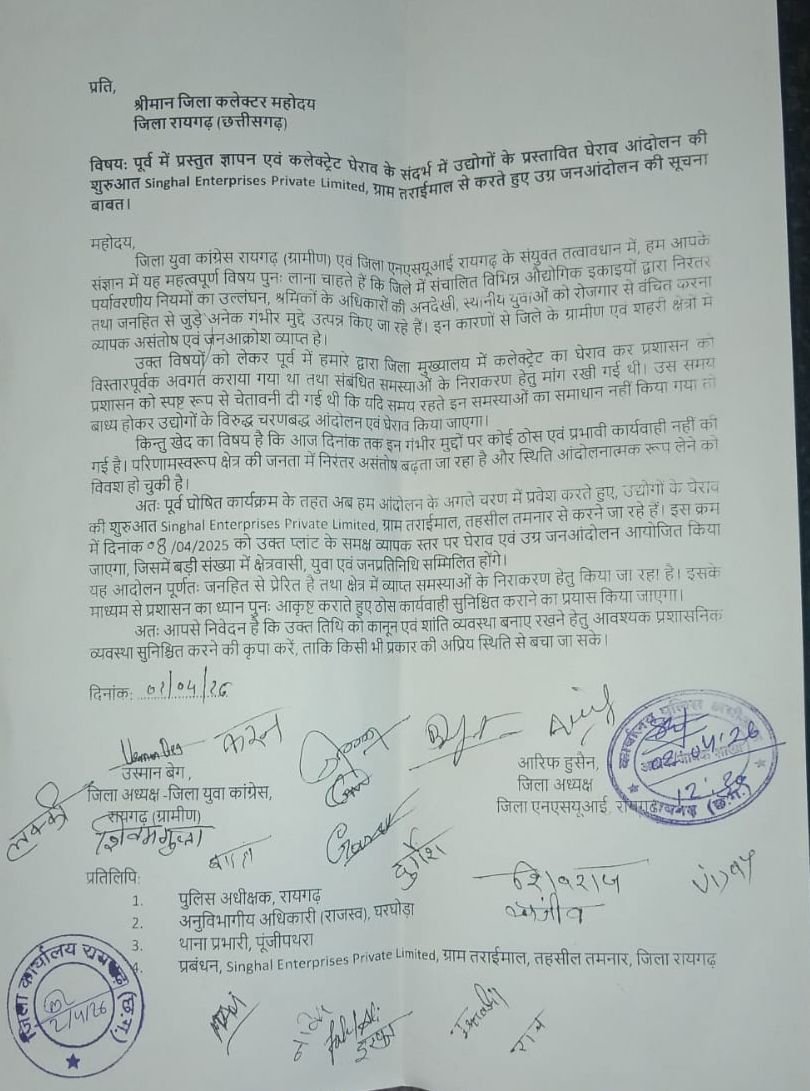 प्रति,
श्रीमान जिला कलेक्टर महोदय
जिला रायगढ़ (छत्तीसगढ़)
विषय: पूर्व में प्रस्तुत ज्ञापन एवं कलेक्ट्रेट घेराव के संदर्भ में उद्योगों के प्रस्तावित घेराव आंदोलन की
शुरुआत Singhal Enterprises Private Limited, ग्राम तराईमाल से करते हुए उग्र जनआंदोलन की सूचना
बाबत।
महोदय,
जिला युवा कांग्रेस रायगढ़ (ग्रामीण) एवं जिला एनएसयूआई रायगढ़ के संयुक्त तत्वावधान में, हम आपके
संज्ञान में यह महत्वपूर्ण विषय पुनः लाना चाहते हैं कि जिले में संचालित विभिन्न औद्योगिक इकाइयों द्वारा निरंतर
पर्यावरणीय नियमों का उल्लंघन, श्रमिकों के अधिकारों की अनदेखी, स्थानीय युवाओं को रोजगार से वंचित करना
तथा जनहित से जुड़े अनेक गंभीर मुद्दे उत्पन्न किए जा रहे हैं। इन कारणों से जिले के ग्रामीण एवं शहरी क्षेत्रों में
व्यापक असंतोष एवं जनआक्रोश व्याप्त है।
उक्त विषयों को लेकर पूर्व में हमारे द्वारा जिला मुख्यालय में कलेक्ट्रेट का घेराव कर प्रशासन को
विस्तारपूर्वक अवगत कराया गया था तथा संबंधित समस्याओं के निराकरण हेतु मांग रखी गई थी। उस समय
प्रशासन को स्पष्ट रूप से चेतावनी दी गई थी कि यदि समय रहते इन समस्याओं का समाधान नहीं किया गया तो
बाध्य होकर उद्योगों के विरुद्ध चरणबद्ध आंदोलन एवं घेराव किया जाएगा।
किन्तु खेद का विषय है कि आज दिनांक तक इन गंभीर मुद्दों पर कोई ठोस एवं प्रभावी कार्यवाही नहीं की
गई है। परिणामस्वरूप क्षेत्र की जनता में निरंतर असंतोष बढ़ता जा रहा है और स्थिति आंदोलनात्मक रूप लेने को
विवश हो चुकी है।
अतः पूर्व घोषित कार्यक्रम के तहत अब हम आंदोलन के अगले चरण में प्रवेश करते हुए, उद्योगों के घेराव
की शुरुआत Singhal Enterprises Private Limited, ग्राम तराईमाल, तहसील तमनार से करने जा रहे हैं। इस क्रम
में दिनांक 08/04/2025 को उक्त प्लांट के समक्ष व्यापक स्तर पर घेराव एवं उग्र जनआंदोलन आयोजित किया
जाएगा, जिसमें बड़ी संख्या में क्षेत्रवासी, युवा एवं जनप्रतिनिधि सम्मिलित होंगे।
यह आंदोलन पूर्णतः जनहित से प्रेरित है तथा क्षेत्र में व्याप्त समस्याओं के निराकरण हेतु किया जा रहा है। इसके
माध्यम से प्रशासन का ध्यान पुनः आकृष्ट कराते हुए ठोस कार्यवाही सुनिश्चित कराने का प्रयास किया जाएगा।
अतः आपसे निवेदन है कि उक्त तिथि को कानून एवं शांति व्यवस्था बनाए रखने हेतु आवश्यक प्रशासनिक
व्यवस्था सुनिश्चित करने की कृपा करें, ताकि किसी भी प्रकार की अप्रिय स्थिति से बचा जा सके।
दिनांक: 02/04/26
करन
उस्मान बेग,
जिला अध्यक्ष -जिला युवा कांग्रेस,
रायगढ़ (ग्रामीण)
आरिफ हुसैन,
जिला अध्यक्ष
जिला एनएसयूआई, रायगढ़
कार्यालय पुलिस अधीक्षक
02.04.26
(छ.ग.)
लक्की
शिवमगुप्ता
दुर्गेश
शिवराज
Vijay
प्रतिलिपि:
1. पुलिस अधीक्षक, रायगढ़
2. अनुविभागीय अधिकारी (राजस्व), घरघोड़ा
3. थाना प्रभारी, पूंजीपथरा
4. प्रबंधन, Singhal Enterprises Private Limited, ग्राम तराईमाल, तहसील तमनार, जिला रायगढ़
जिला कार्यालय रायगढ़ (छ.ग.)
2/4/26
राम